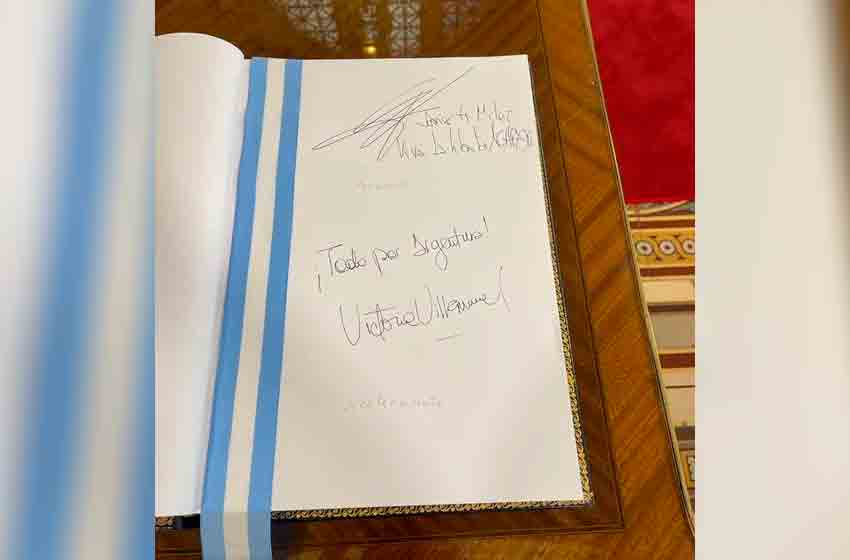 Javier Milei
Viva la libertad CARAJO
¡Todo por Argentina!
Victoria Villarruel